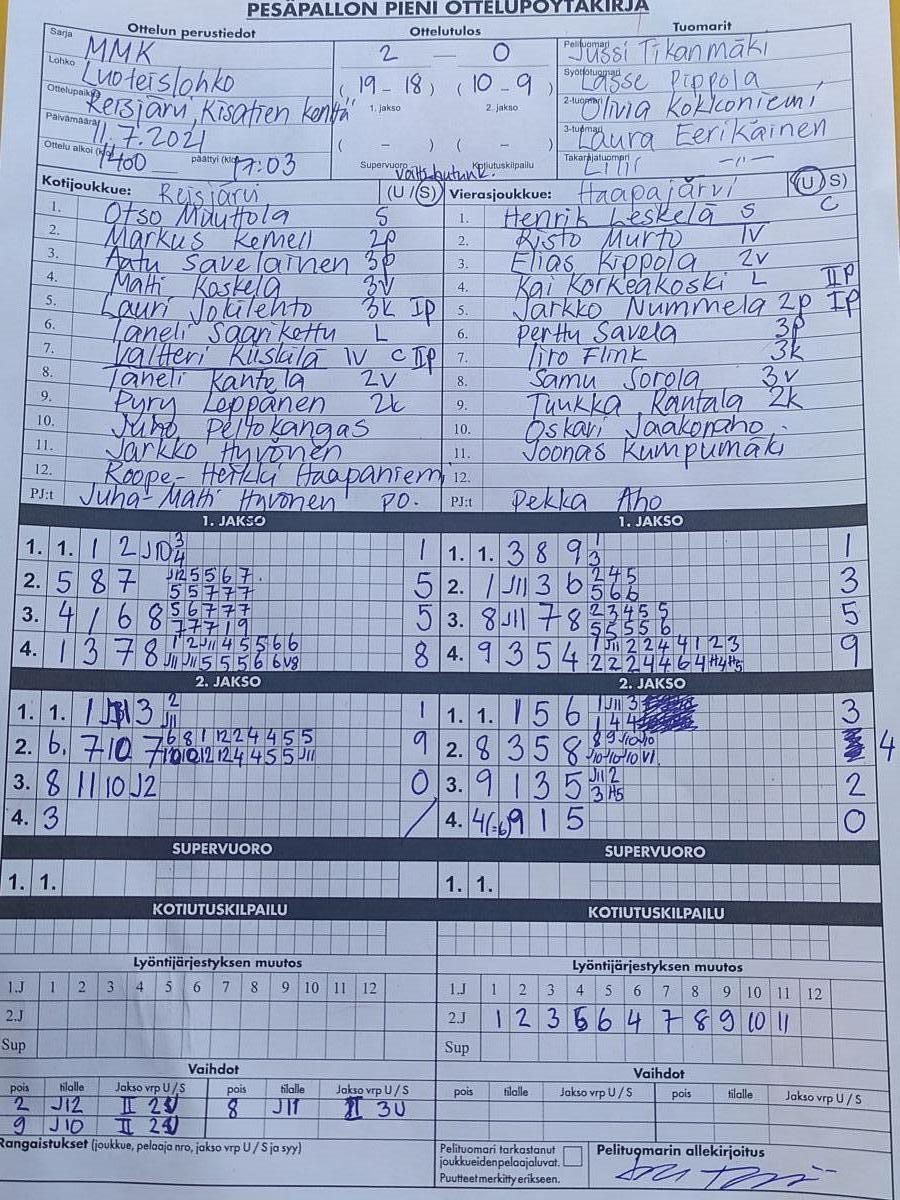 PESÄPALLON PIENI OTTELUPÖYTÄKIRJA
Ottelun perustiedot Ottelutulos Tuomarit
Sarja MMK 2 — 0 Pelituomari Jussi Tikanmäki
Lohko Luoteislohko (19 - 18) (10 - 9) Syöttötuomari Lasse Pippola
Ottelupaikka Reisjärvi, Kisatien kenttä 1. jakso 2. jakso 2-tuomari Olivia Kokkoniemi
Päivämäärä 11.7.2021 ( - ) ( - ) 3-tuomari Laura Eerikäinen
Ottelu alkoi (klo) 1400 päättyi (klo) 17:03 Supervuoro Kotiutuskilpailu Takarajatuomari Lilli —"—
Kotijoukkue: Reisjärvi (U / S) Vierasjoukkue: Haapajärvi (U / S)
1. Otso Muuttola S 1. Henrik Leskelä S C
2. Markus Kemell 2p 2. Risto Murto IV
3. Aatu Savelainen 3p 3. Elias Kippola 2v
4. Matti Koskela 3v 4. Kai Korkeakoski L IIP
5. Lauri Jokilehto 3k IP 5. Jarkko Nummela 2p IP
6. Taneli Saarikettu L 6. Perttu Savela 3p
7. Valtteri Kiiskilä IV C IIP 7. Iiro Flink 3k
8. Taneli Kantela 2v 8. Samu Sorola 3v
9. Pyry Leppänen 2k 9. Tuukka Rantala 2k
10. Juho Peltokangas 10. Oskari Jaakonaho
11. Jarkko Hyvönen 11. Joonas Kumpumäki
12. Roope-Heikki Haapaniemi 12.
PJ:t Juha-Matti Hyvönen PO. PJ:t Pekka Aho
1. JAKSO 1. JAKSO
1. 1. 1 2 J10 3 4 1 1. 1. 3 8 9 1 3 1
2. 5 8 7 J12 5 5 6 7 5 5 7 7 7 5 2. 1 J11 3 6 2 4 5 5 6 6 3
3. 4 1 6 8 5 6 7 7 7 7 7 7 1 9 5 3. 8 J11 7 8 2 3 4 5 5 5 5 5 5 6 5
4. 1 3 7 8 1 2 J11 4 5 5 6 6 J11 J11 5 5 5 6 6 V8 8 4. 9 3 5 4 1 J11 2 2 4 4 1 2 3 2 2 2 4 4 6 4 H4 H5 9
2. JAKSO 2. JAKSO
1. 1. 1 3 2 J11 1 1. 1. 1 5 6 1 J11 3 1 4 4 3
2. 6. 7 10 7 6 8 1 12 2 4 4 5 5 10 10 12 12 4 4 5 5 J11 9 2. 8 3 5 8 8 9 J10 J10 J10 J10 J10 V1 4
3. 8 11 10 J2 0 3. 9 1 3 5 J11 2 3 H5 2
4. 3 / 4. 4(=6) 9 1 5 0
SUPERVUORO SUPERVUORO
1. 1. 1. 1.
KOTIUTUSKILPAILU KOTIUTUSKILPAILU
Lyöntijärjestyksen muutos Lyöntijärjestyksen muutos
1.J 1 2 3 4 5 6 7 8 9 10 11 12 1.J 1 2 3 4 5 6 7 8 9 10 11 12
2.J 2.J 1 2 3 5 6 4 7 8 9 10 11
Sup Sup
Vaihdot Vaihdot
pois tilalle Jakso vrp U / S pois tilalle Jakso vrp U / S pois tilalle Jakso vrp U / S pois tilalle Jakso vrp U / S
2 J12 II 2 8 J11 II 3U
9 J10 II 2
Rangaistukset (joukkue, pelaaja nro, jakso vrp U / S ja syy) Pelituomari tarkastanut Pelituomarin allekirjoitus
joukkueiden pelaajaluvat.
Puutteet merkitty erikseen.